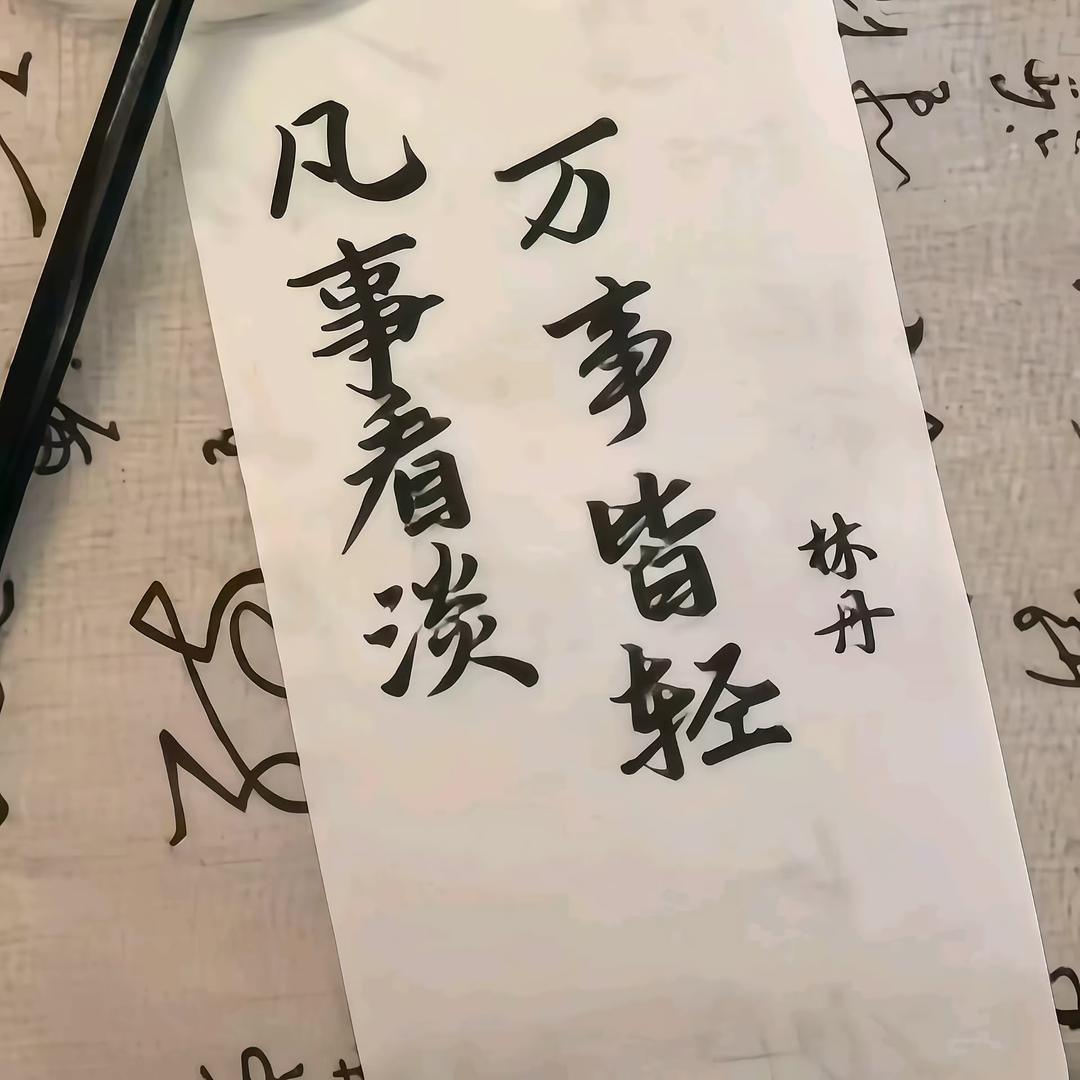 凡事看淡
万事皆轻
林丹